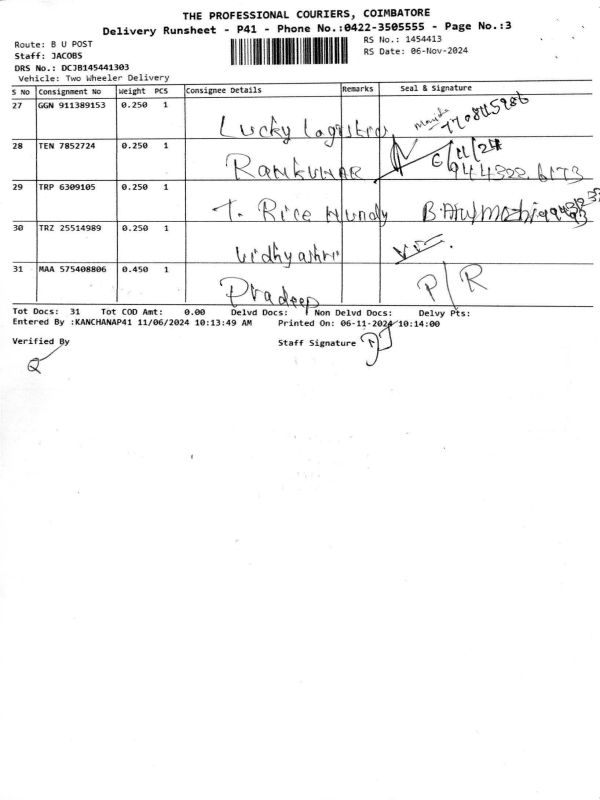 THE PROFESSIONAL COURIERS, COIMBATORE
Delivery Runsheet - P41 - Phone No.:0422-3505555 - Page No.:3
Route: B U POST
RS No.: 1454413
Staff: JACOBS
RS Date: 06-Nov-2024
DRS No.: DCJB145441303
Vehicle: Two Wheeler Delivery
S No Consignment No Weight PCS Consignee Details Remarks Seal & Signature
27 GGN 911389153 0.250 1
Lucky Logistics
28 TEN 7852724 0.250 1 6/11/24
Ramkumar 944322 6173
29 TRP 6309105 0.250 1
T. Rice Mundy
30 TRZ 25514989 0.250 1
Vidhyashri
31 MAA 575408806 0.450 1
Pradeep P/R
Tot Docs: 31 Tot COD Amt: 0.00 Delvd Docs: Non Delvd Docs: Delvy Pts:
Entered By :KANCHANAP41 11/06/2024 10:13:49 AM Printed On: 06-11-2024 10:14:00
Verified By
Staff Signature